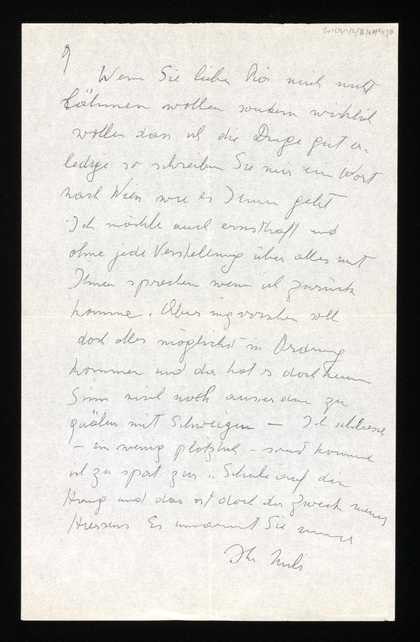 9
Wenn Sie lieber mich nicht
lähmen wollen sondern wirklich
wollen dass ich die Dinge gut er-
ledige so schreiben Sie mir ein Wort
nach Wien wie es Ihnen geht
Ich möchte auch ernsthaft und
ohne jede Verstellung über alles mit
Ihnen sprechen wenn ich zurück
komme. Aber inzwischen soll
doch alles möglichst in Ordnung
kommen und da hat es doch keinen
Sinn mich noch ausserdem zu
quälen mit Schweigen — Ich schliesse
— ein wenig plötzlich - sonst komme
ich zu spät zur Schule auf den
und das ist doch der Zweck meines
Hierseins Es umarmt Sie immer
Ihr